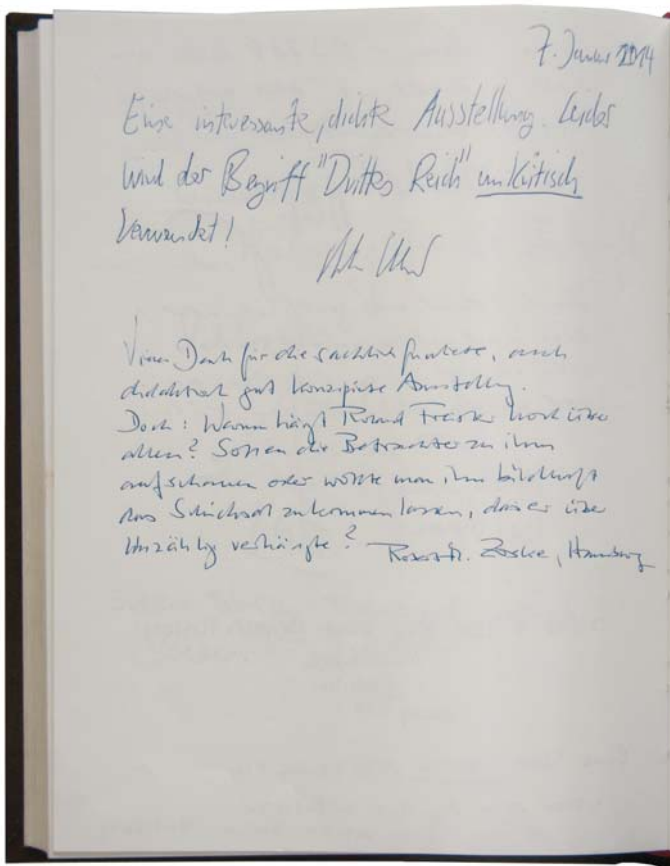 7. Januar 2014
Eine interessante, dichte Ausstellung. Leider
wird der Begriff "Drittes Reich" unkritisch
verwendet!
Vielen Dank für die sachlich fundierte, auch
didaktisch gut konzipierte Ausstellung.
Doch: Warum hängt Roland Freisler hoch über
allem? Sollen die Betrachter zu ihm
aufschauen oder wollte man ihm bildhaft
das Schicksal zukommen lassen, das er über
Unzählig verhängte? Robert M. Zoske, Hamburg